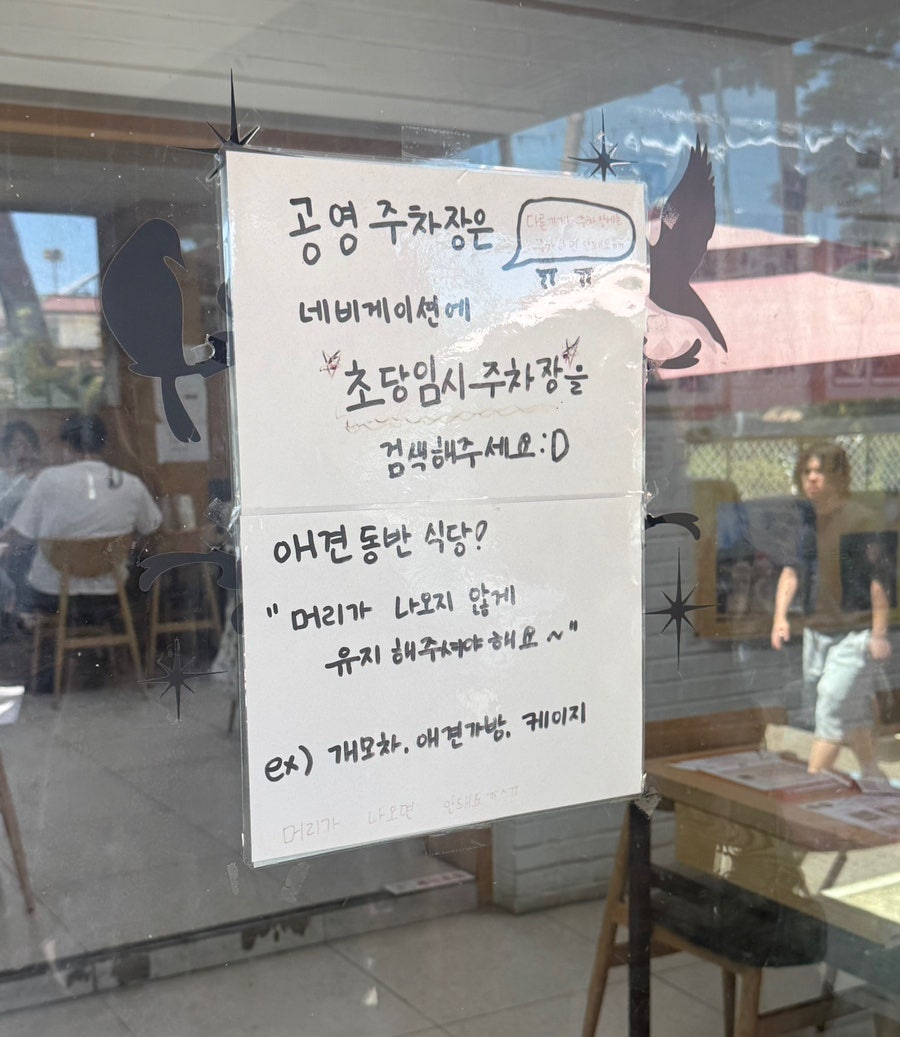 공영 주차장은
다른가게 주차장에는
주차하면 안돼요ㅠㅠ
네비게이션에
초당임시주차장을
검색해주세요:D
애견 동반 식당?
" 머리가 나오지 않게
유지 해주셔야 해요 ~"
ex) 개모차, 애견가방, 케이지
머리가 나오면 안돼요